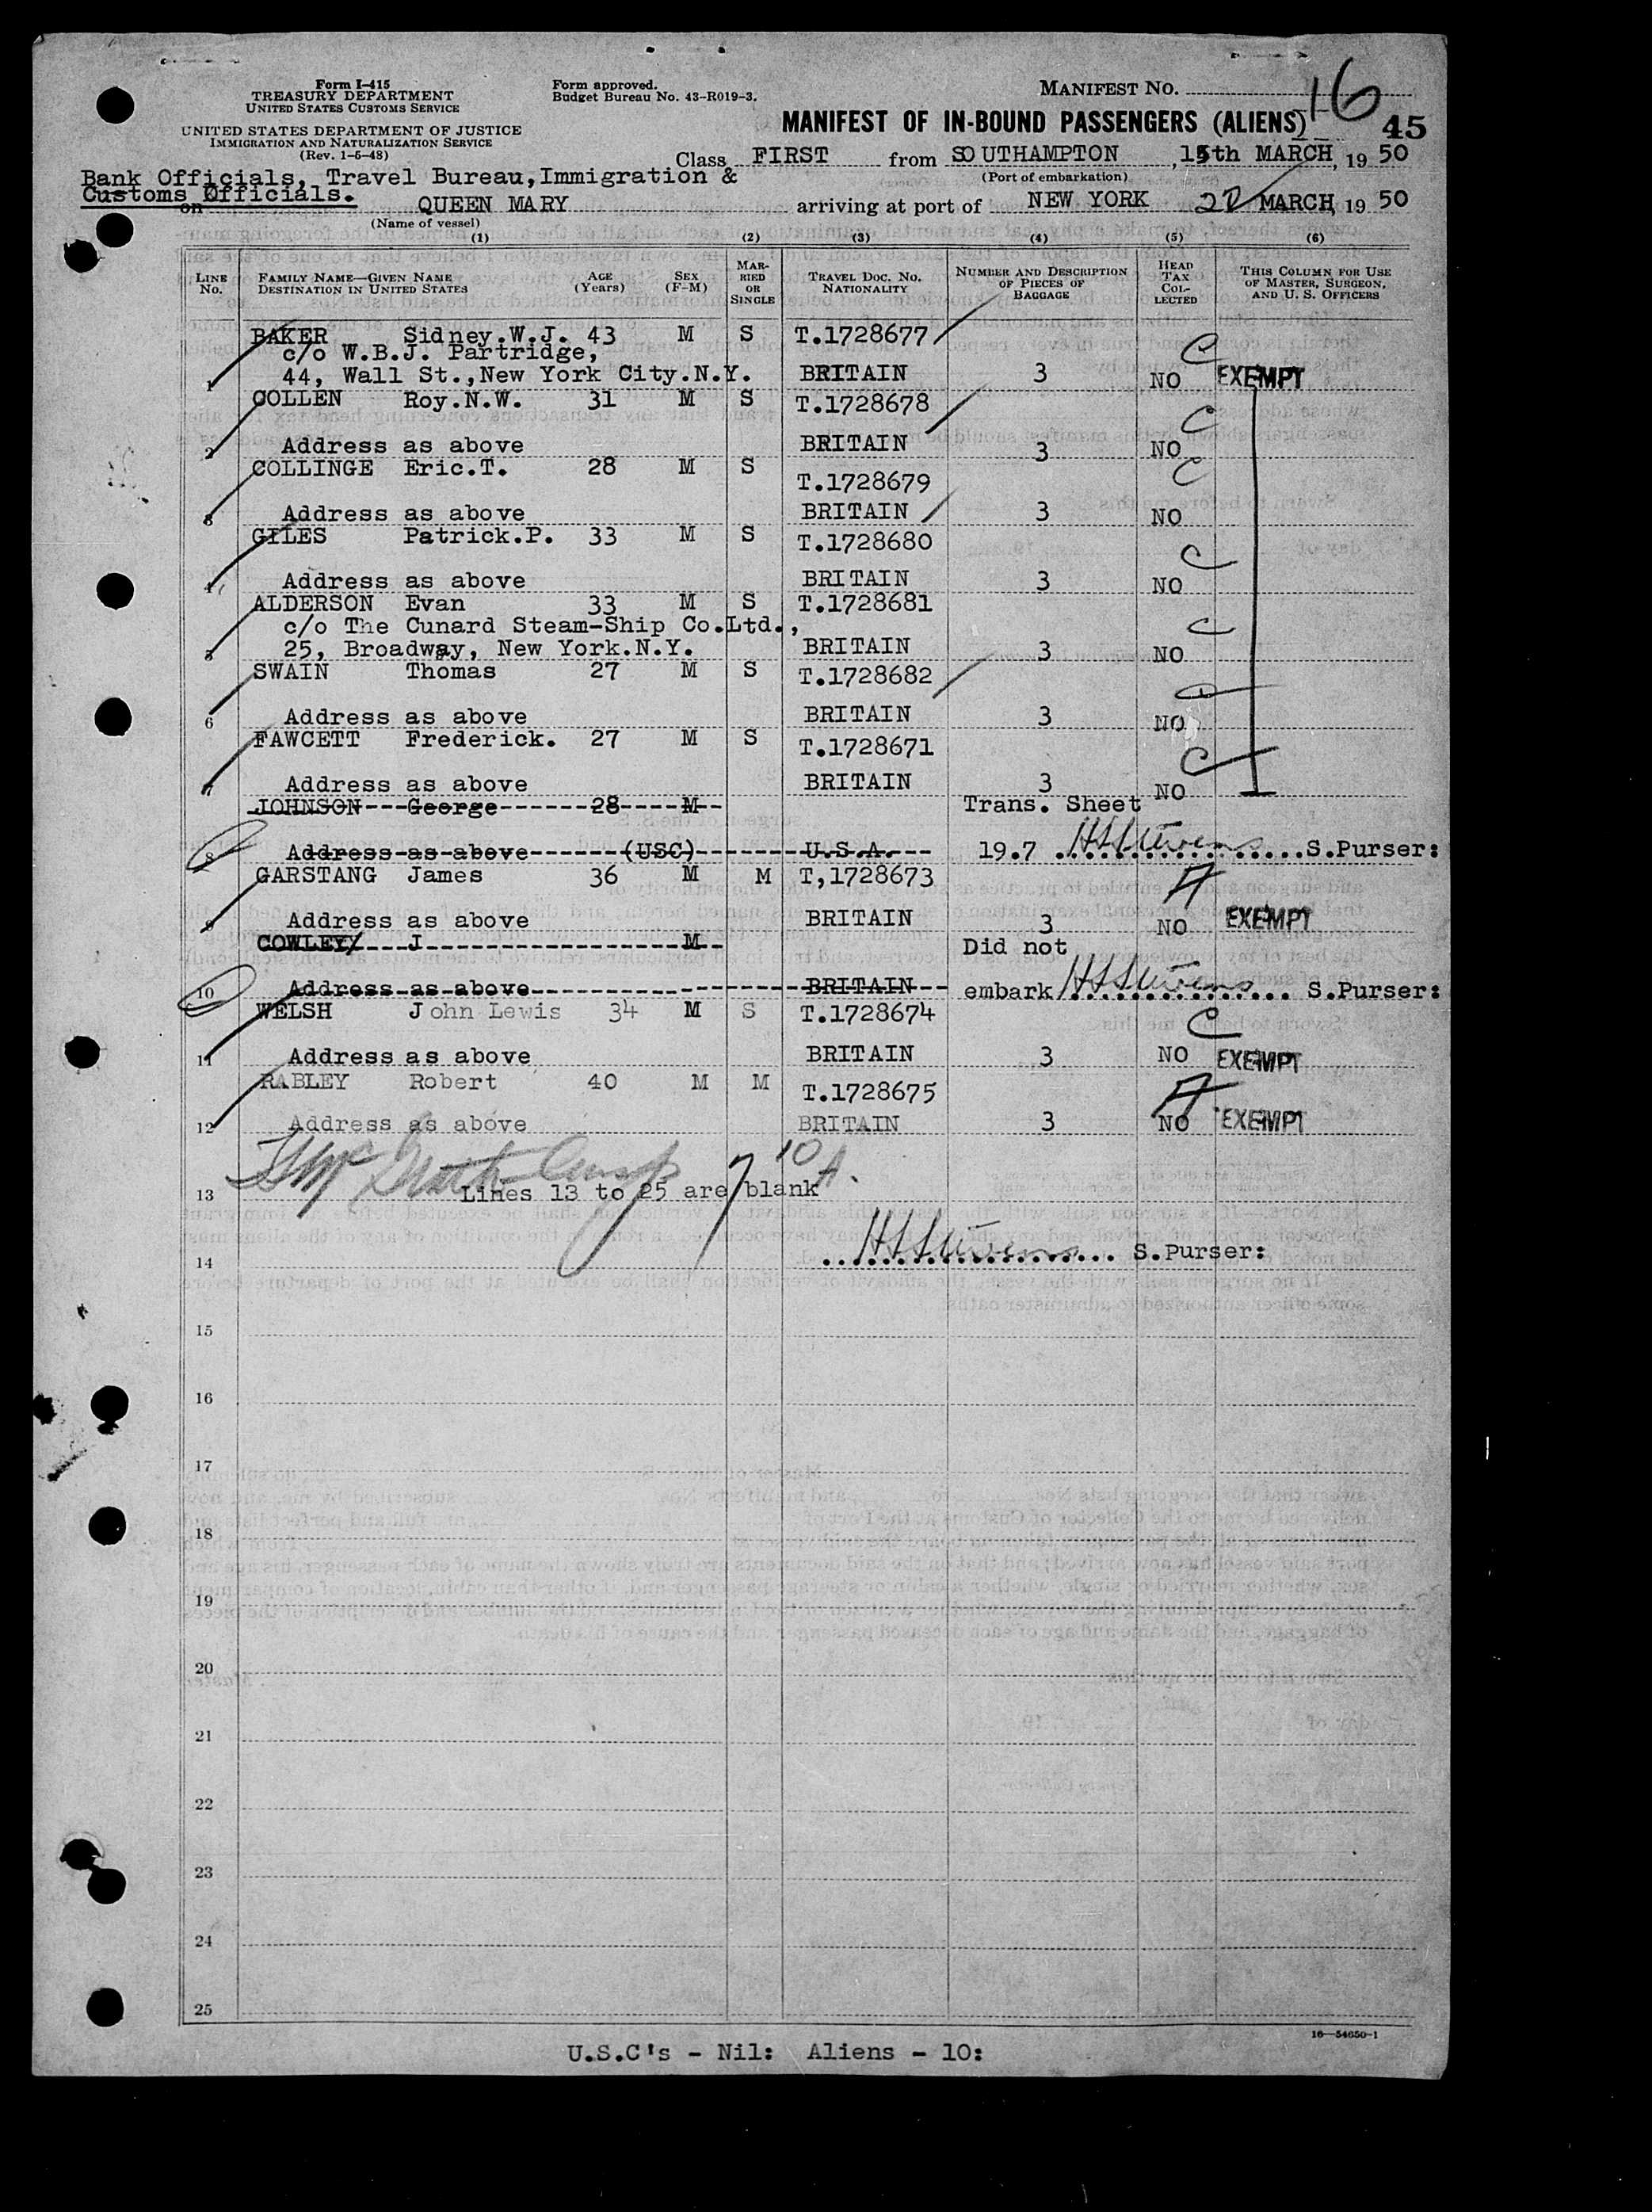 Form I-415
TREASURY DEPARTMENT
UNITED STATES CUSTOMS SERVICE
Form approved.
Budget Bureau No. 43-R019-3.
MANIFEST NO. 16
UNITED STATES DEPARTMENT OF JUSTICE
IMMIGRATION AND NATURALIZATION SERVICE
(Rev. 1-6-48)
MANIFEST OF IN-BOUND PASSENGERS (ALIENS) 45
Class FIRST from SOUTHAMPTON, 15th MARCH, 19 50
(Port of embarkation)
Bank Officials, Travel Bureau, Immigration &
Customs Officials.
on QUEEN MARY arriving at port of NEW YORK 22 MARCH, 19 50
(Name of vessel)
(1) (2) (3) (4) (5) (6)
LINE NO. FAMILY NAME—GIVEN NAME DESTINATION IN UNITED STATES AGE (Years) SEX (F-M) MARRIED OR SINGLE TRAVEL DOC. NO. NATIONALITY NUMBER AND DESCRIPTION OF PIECES OF BAGGAGE HEAD TAX COLLECTED THIS COLUMN FOR USE OF MASTER, SURGEON, AND U. S. OFFICERS
BAKER Sidney.W.J. 43 M S T.1728677
c/o W.B.J. Partridge,
1 44, Wall St.,New York City.N.Y. BRITAIN 3 NO C EXEMPT
COLLEN Roy.N.W. 31 M S T.1728678
2 Address as above BRITAIN 3 NO C
COLLINGE Eric.T. 28 M S T.1728679
3 Address as above BRITAIN 3 NO C
GILES Patrick.P. 33 M S T.1728680
4 Address as above BRITAIN 3 NO C
ALDERSON Evan 33 M S T.1728681
c/o The Cunard Steam-Ship Co.Ltd.,
5 25, Broadway, New York.N.Y. BRITAIN 3 NO C
SWAIN Thomas 27 M S T.1728682
6 Address as above BRITAIN 3 NO
FAWCETT Frederick. 27 M S T.1728671
7 Address as above BRITAIN 3 NO C
JOHNSON George 28 M Trans. Sheet
8 Address as above (USC) U.S.A. 19.7 S.Purser:
GARSTANG James 36 M M T,1728673
9 Address as above BRITAIN 3 NO EXEMPT
COWLEY/ J M Did not
10 Address as above BRITAIN embark S.Purser:
WELSH John Lewis 34 M S T.1728674
11 Address as above BRITAIN 3 NO C EXEMPT
RABLEY Robert 40 M M T.1728675
12 Address as above BRITAIN 3 NO EXEMPT
13 Lines 13 to 25 are blank
14 S.Purser:
15
16
17
18
19
20
21
22
23
24
25
16—54650-1
U.S.C's - Nil: Aliens - 10: